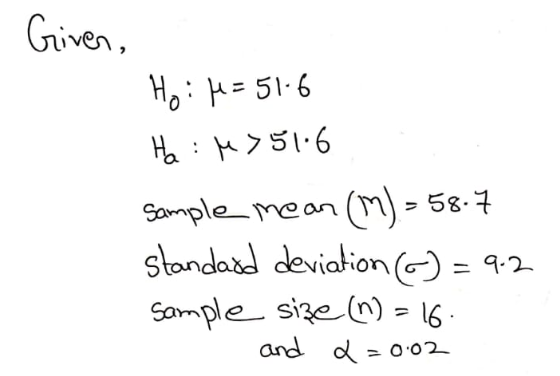 Given,
H₀ : μ = 51.6
Hₐ : μ > 51.6
Sample mean (M) = 58.7
Standard deviation (σ) = 9.2
Sample size (n) = 16.
and α = 0.02